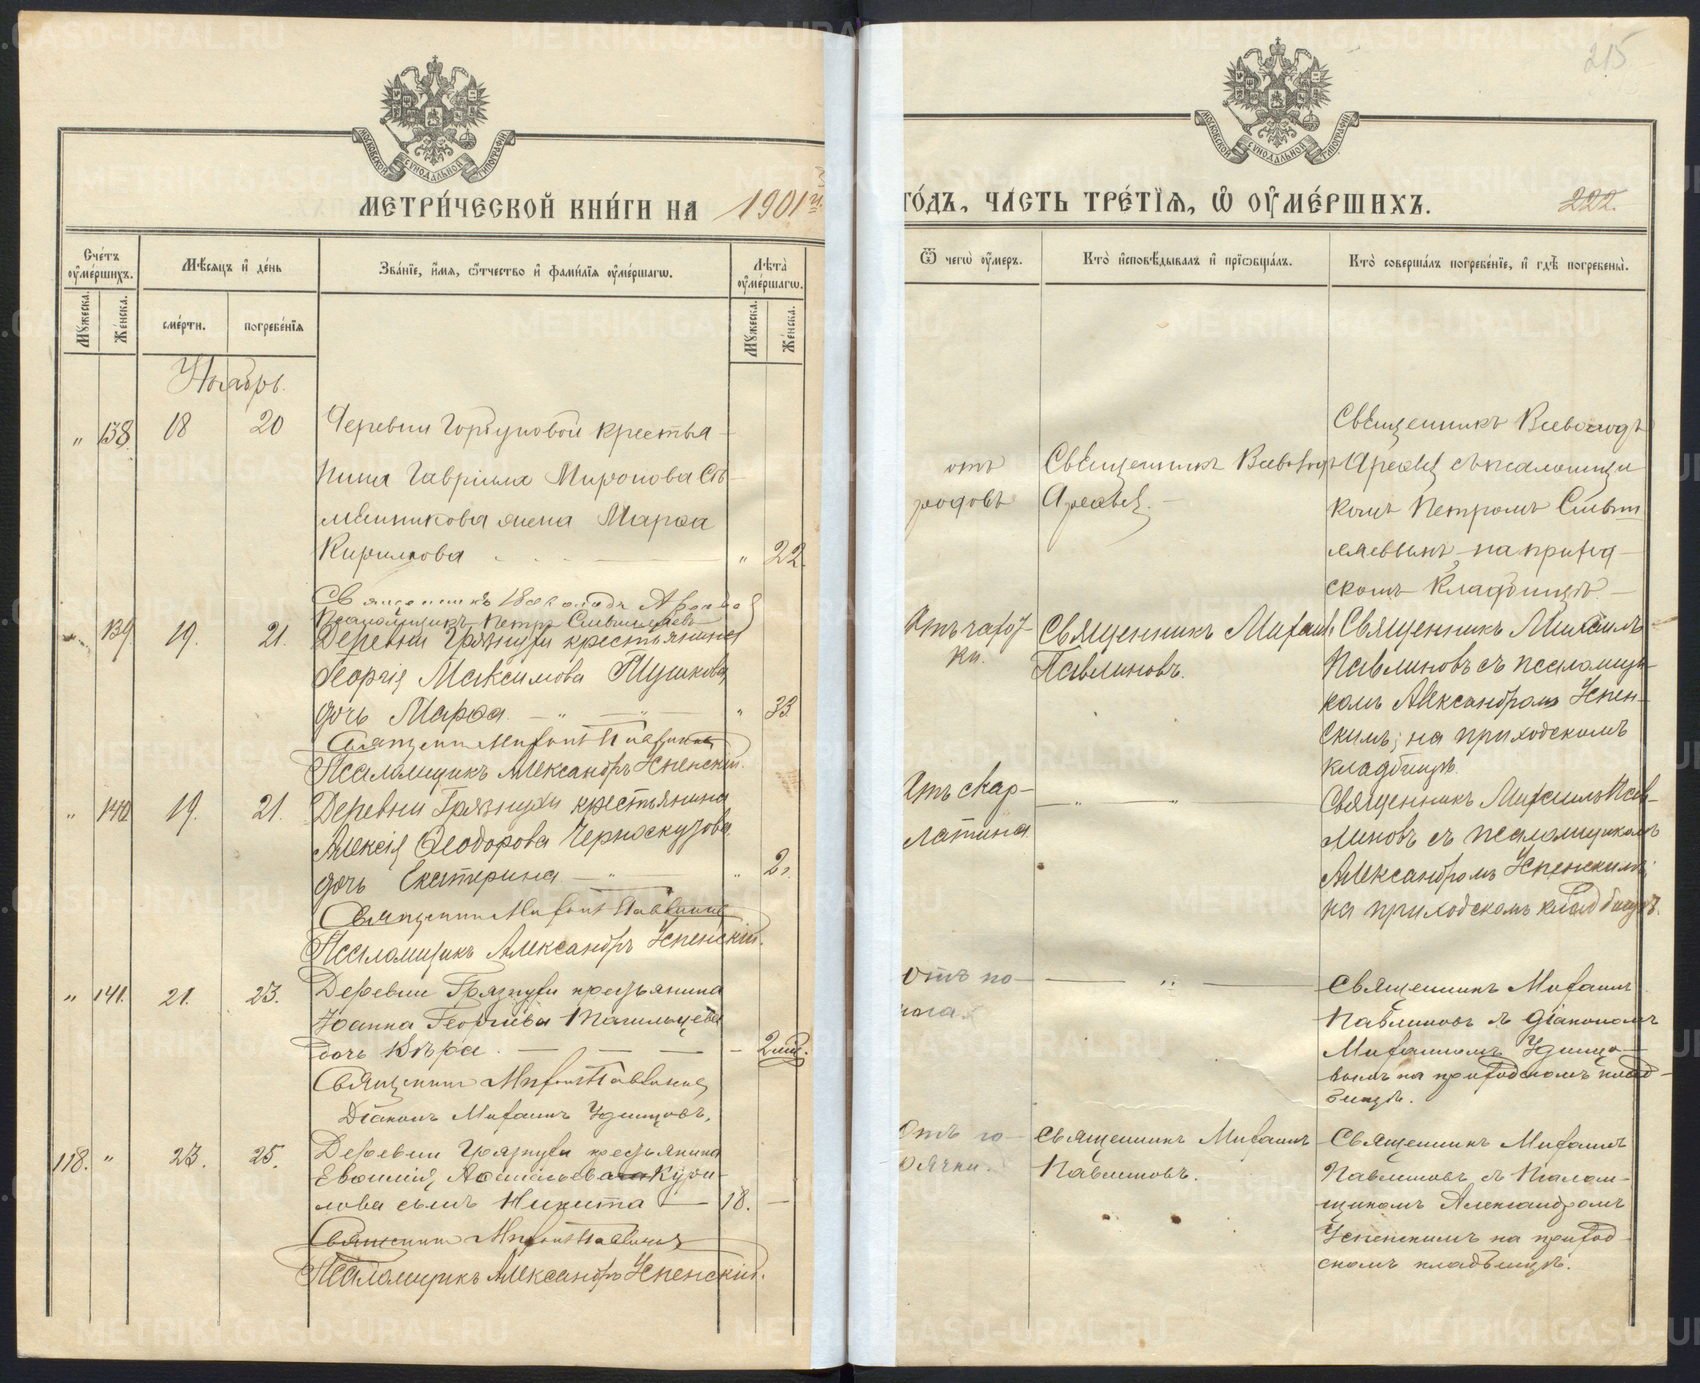 215
МЕТРИ́ЧЕСКОЙ КНИ́ГИ НА 1901 й
ГО́ДЪ, ЧА́СТЬ ТРЕ́ТІѦ, Ѡ҆ ОУ҆МЕ́РШИХЪ.
222.
Сче́тъ оу҆ме́ршихъ.
Мѣ́сѧцъ и҆ де́нь
Зва́нїе, и҆́мѧ, ѻ҆́тчество и҆ фами́лїѧ оу҆ме́ршагѡ.
Лѣ́та оу҆ме́ршагѡ.
Ѿ чегѡ̀ оу҆́меръ.
Кто̀ и҆сповѣ́дывалъ и҆ прїѡбща́лъ.
Кто̀ соверша́лъ погребе́нїе, и҆ гдѣ̀ погребены̀.
Мꙋ́жеска.
Же́нска.
сме́рти.
погребе́нїѧ
Мꙋ́жеска.
Же́нска.
Ноябрь.
„ 138 18 20 Деревни Горбуновой крестья-
нина Гавріила Миронова
жена Марѳа
Кирилова " 22
Священникъ Всеволодъ
Псаломщикъ Петръ
отъ
родовъ
Священникъ Всеволодъ
Священникъ Всеволодъ
съ псаломщи
комъ Петромъ
на приход
скомъ кладбищѣ
139 19. 21. Деревни Грязнухи крестьянина
Георгія Максимова Глушкова
дочь Марѳа — " — " 33
Священник Михаил Павлинов
Псаломщикъ Александръ Успенскій.
Отъ чахот
ки.
Священникъ Михаилъ
Павлиновъ.
Священникъ Михаилъ
Павлиновъ съ псаломщи-
комъ Александромъ Успен-
скимъ; на приходскомъ
кладбищѣ.
„ 140 19. 21. Деревни Грязнухи крестьянина
Алексія Ѳеодорова Черноскутова
дочь Екатерина — " — " 2.
Священник Михаил Павлинов
Псаломщикъ Александръ Успенскій.
Отъ скар-
латина
— " — " —
Священникъ Михаилъ Пав-
линовъ съ псаломщикомъ
Александромъ Успенскимъ;
на приходскомъ кладбищѣ.
„ 141. 21. 23. Деревни Грязнухи крестьянина
Іоанна Георгіева Тагильцева
дочь Вѣра. — — — — 2 м.
Священник Михаил Павлинов
Діаконъ Михаилъ Удинцовъ.
Отъ по-
носа
— " —
Священникъ Михаилъ
Павлиновъ съ діакономъ
Михаиломъ Удинцо-
вымъ на приходскомъ клад-
бищѣ.
118. " 23. 25. Деревни Грязнухи крестьянина
Евѳимія
лова сынъ Никита — 18. —
Священник Михаил Павлинов
Псаломщикъ Александръ Успенскій.
Отъ го-
рячки.
Священникъ Михаилъ
Павлиновъ.
Священникъ Михаилъ
Павлиновъ съ Псалом-
щикомъ Александромъ
Успенскимъ на приход-
скомъ кладбищѣ.